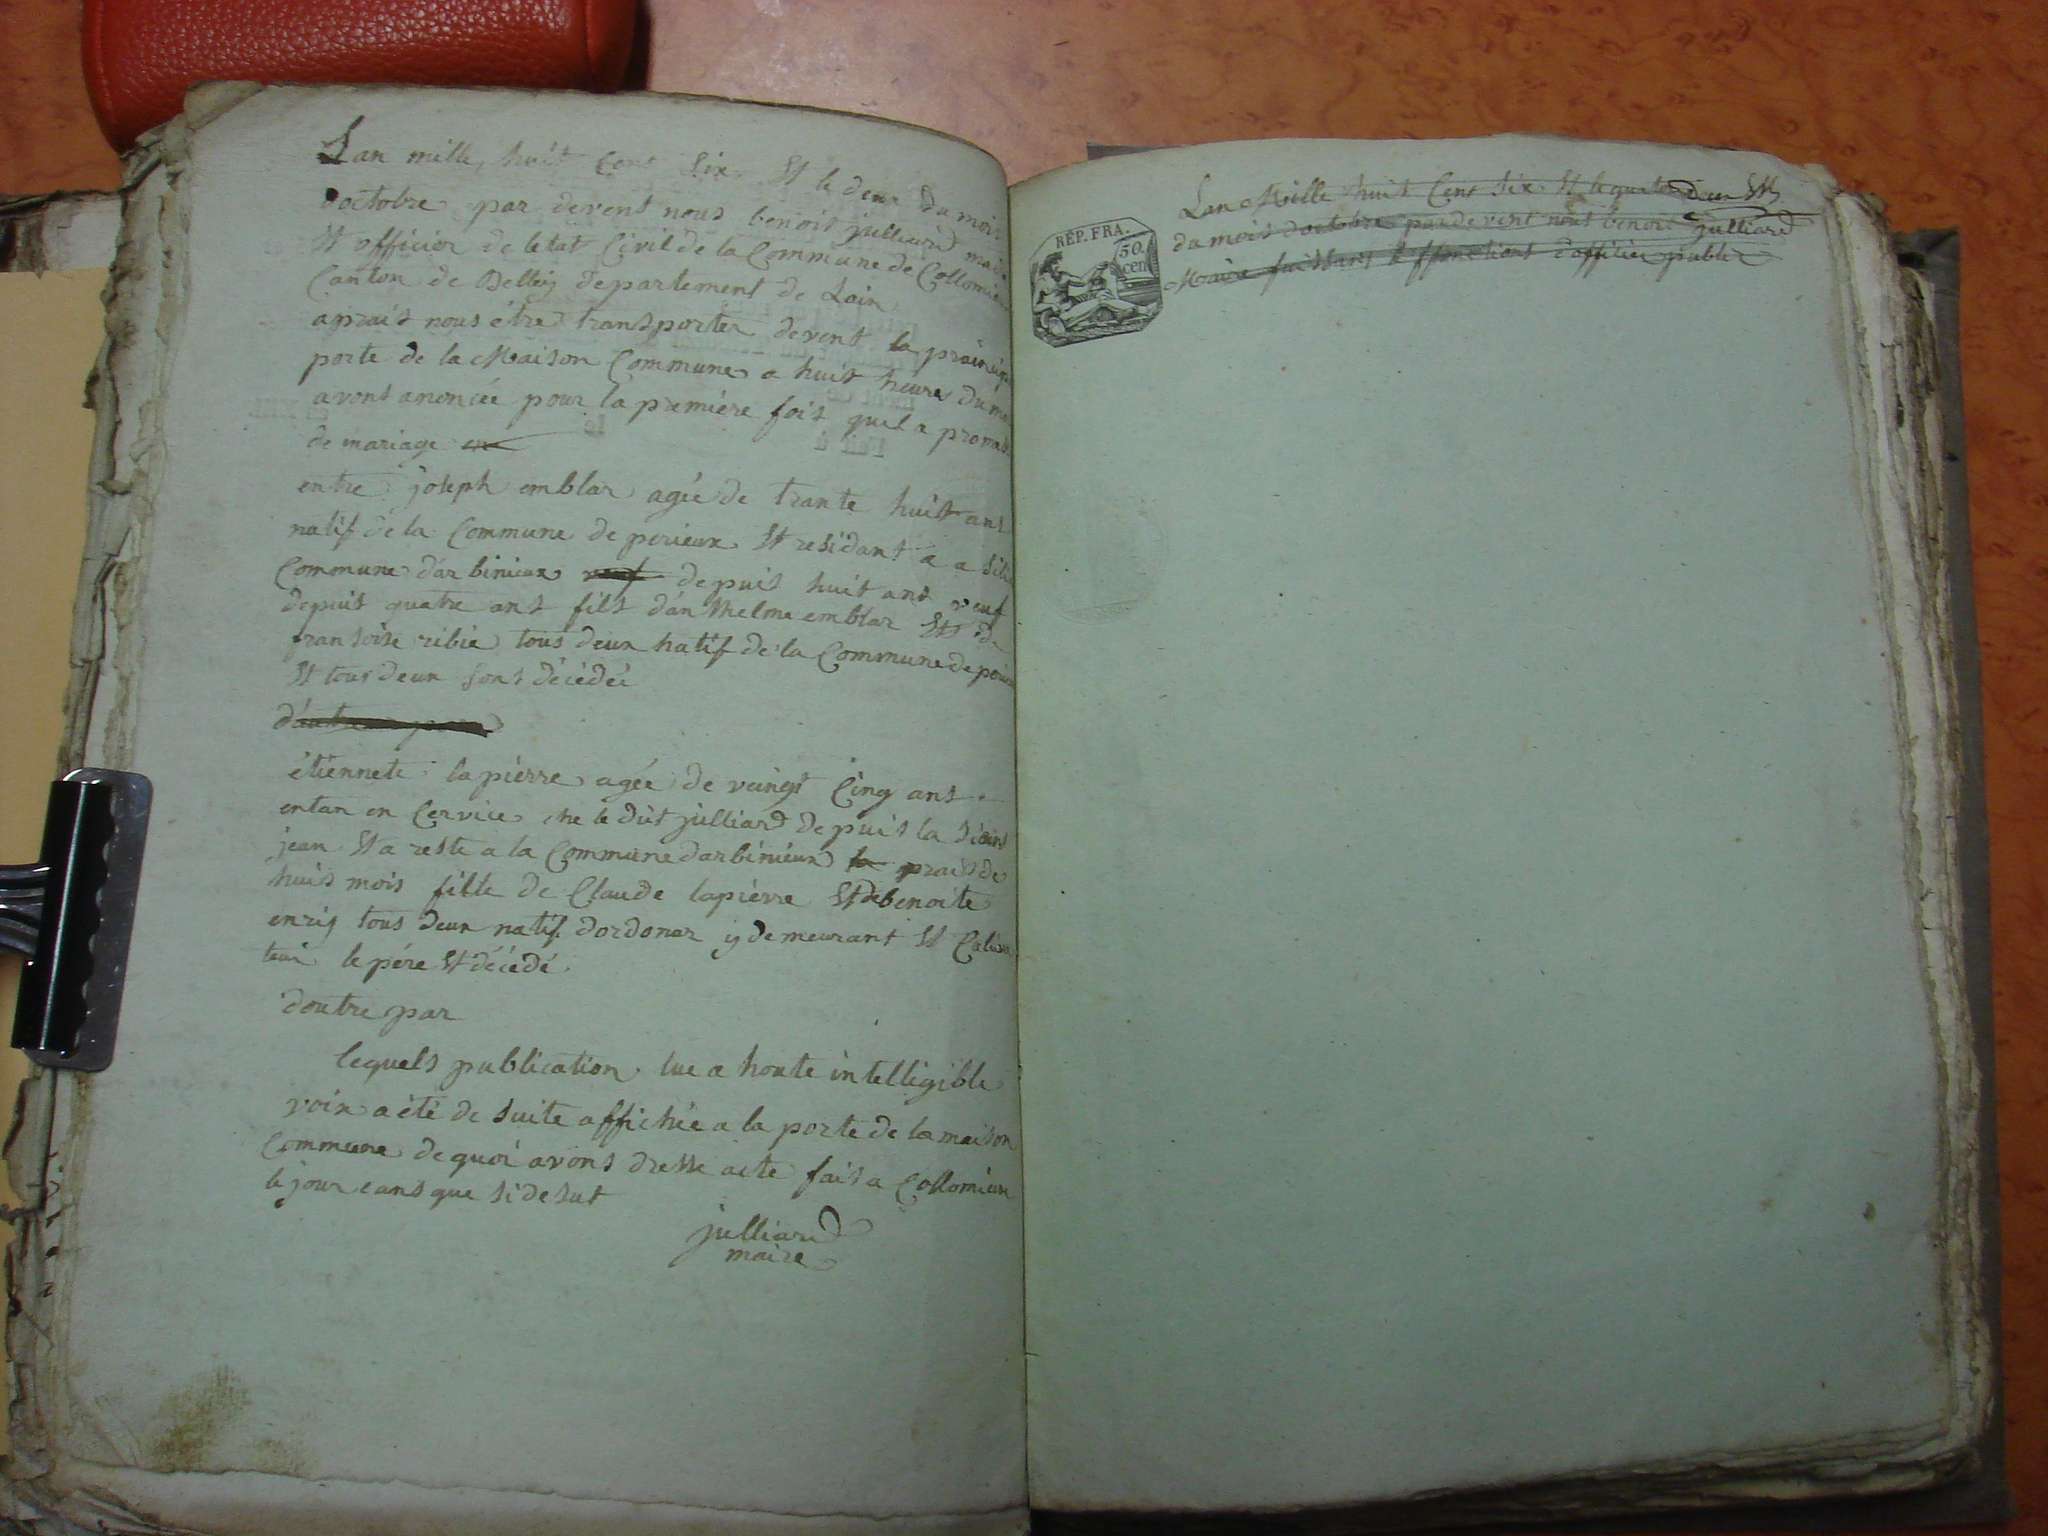 Lan mille huit Cent Six Et le deux du mois
doctobre par devent nous benoit julliard maire
Et officier de letat Civil de la Commune de Collomieu
Canton de Belley departement de Lain
aprait nous étre transporter devent la prainsipa
porte de la Maison Commune a huit heure du ma
avons anoncée pour la premiére fois quil a promaise
de mariage
entre joseph emblar agée de trante huit ans
natif de la Commune de perieux Et residant a a Sil
Commune darbinieux depuis huit ans veuf
depuis quatre ans fils dánthelme emblar Et de
fransoise ribie tous deux natif de la Commune de perieu
Et tous deux sons décédéé
dáutre par
étiennete lapiérre agée de vaingt Cinq ans
entan en Cervice ché le dit julliard depuis la Sieint
jean Et a reste a la Commune darbinieux la prait de
huit mois fille de Claude lapiérre Et de benoite
enriy tous deux natif dordonar y demeurant Et Cultiva
teur le pére Et décédé
doutre par
lequels publication lue a houte intelligible
voix a été de suite affichée a la porte de la maison
Commune de quoi avons dresse acte fait a Collomieux
le jour eans que si desut
julliard
maire
REP. FRA.
50.
cen
Lan Mille huit Cent Six Et le quatorz deux Et
du mois doctobre par devent nous benoit julliard
Maire faissant les fonctions dofficier public